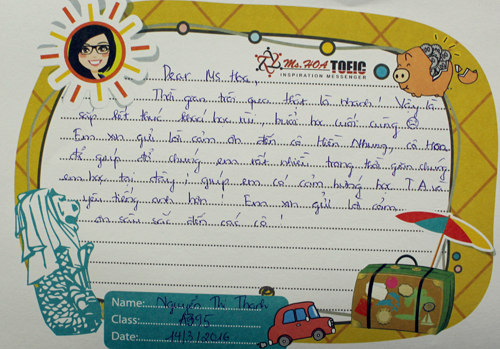 Dear Ms. Hoa,
Ms. HOA TOEIC
INSPIRATION MESSENGER
Thời gian trôi qua thật là nhanh! Vậy là
sắp kết thúc khóa học rồi, buổi học cuối cùng
Em xin gửi lời cảm ơn đến cô Hiền Nhung, cô Hoa
đã giúp đỡ chúng em rất nhiều trong thời gian chúng
em học tại đây! giúp em có cảm hứng học T.A và
yêu tiếng anh hơn! Em xin gửi lời cảm
ơn sâu sắc đến các cô!
Name: Nguyễn Thị Thanh
Class: A395
Date: 14/3/2016